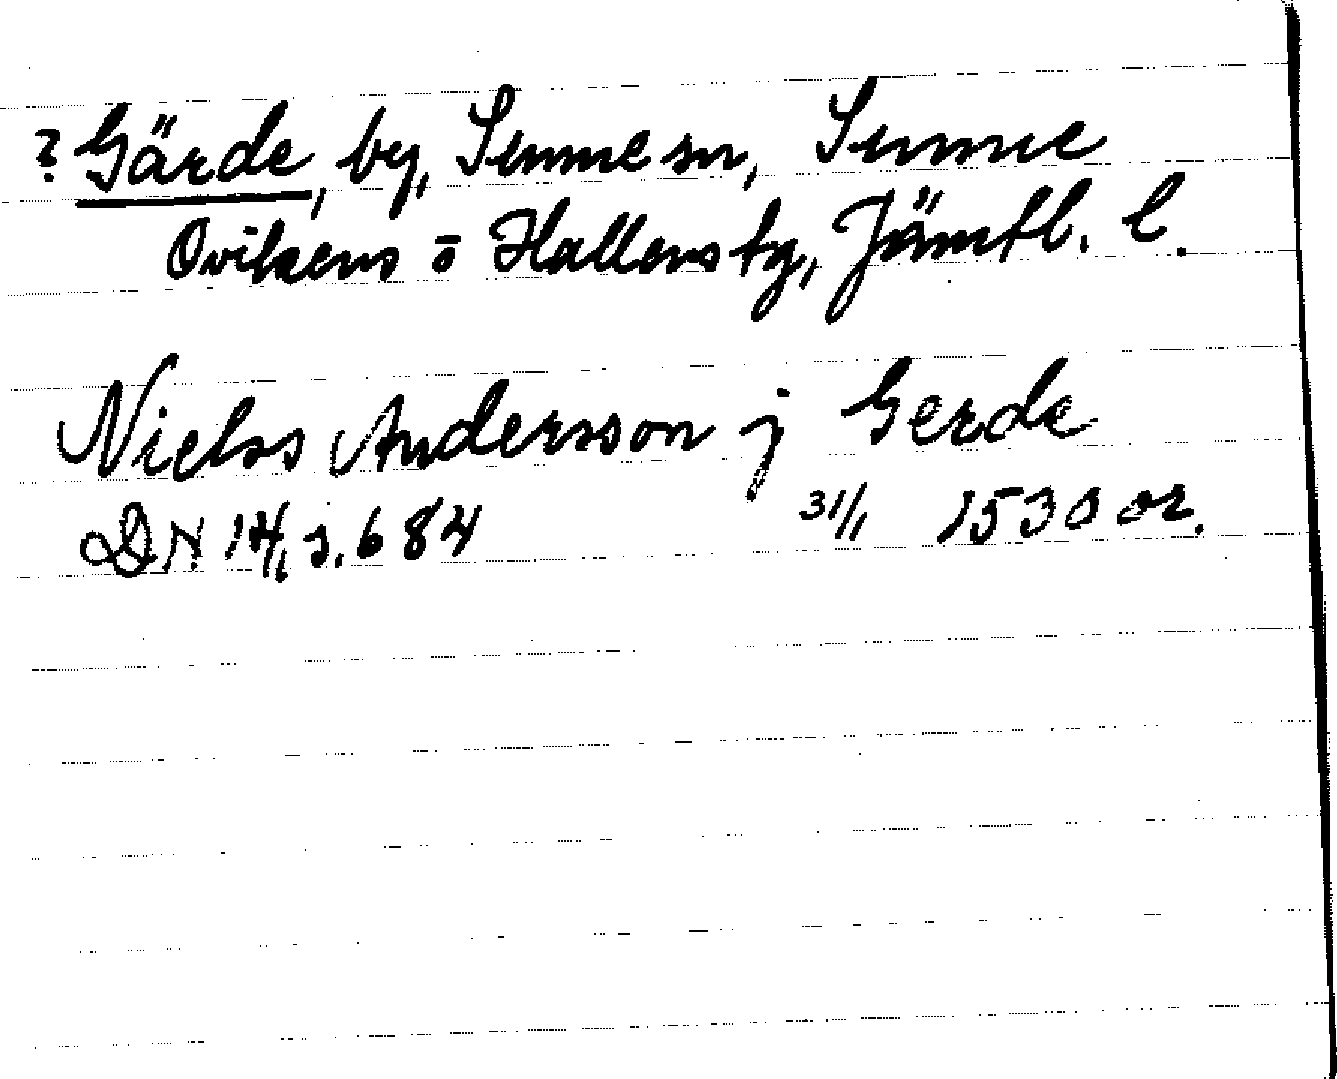 ? Gärde, by, Sunne sn, Sunne
Ovikens o Hallens tg, Jämtl. l.
Nielss Andersson j Gerde
DN 14, s. 684 31/1 1530 or.